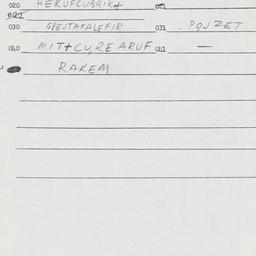 020 HERUFCUBRIK+ 021
022
030 GPEJTAFALEFIR 031 . POJZET
040 MIT+CY,REARUF 041 —
RAKEM